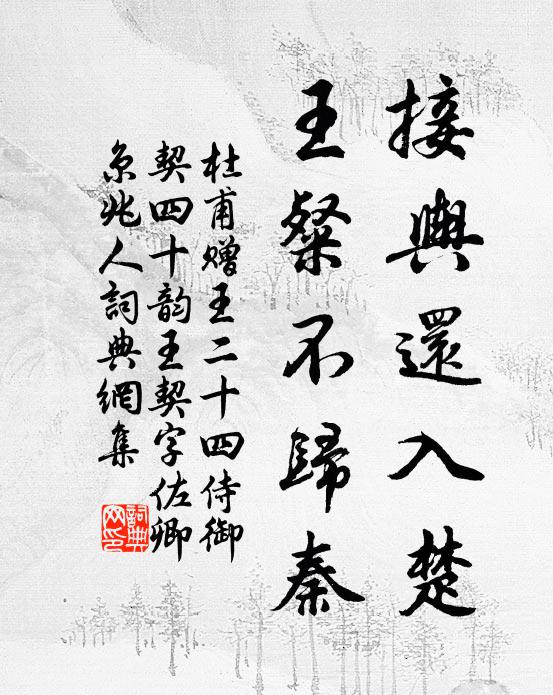 接輿還入楚
王粲不歸秦
杜甫赠王二十四侍御
契四十韵王契字佐卿
京兆人詞典網集
詞典网印